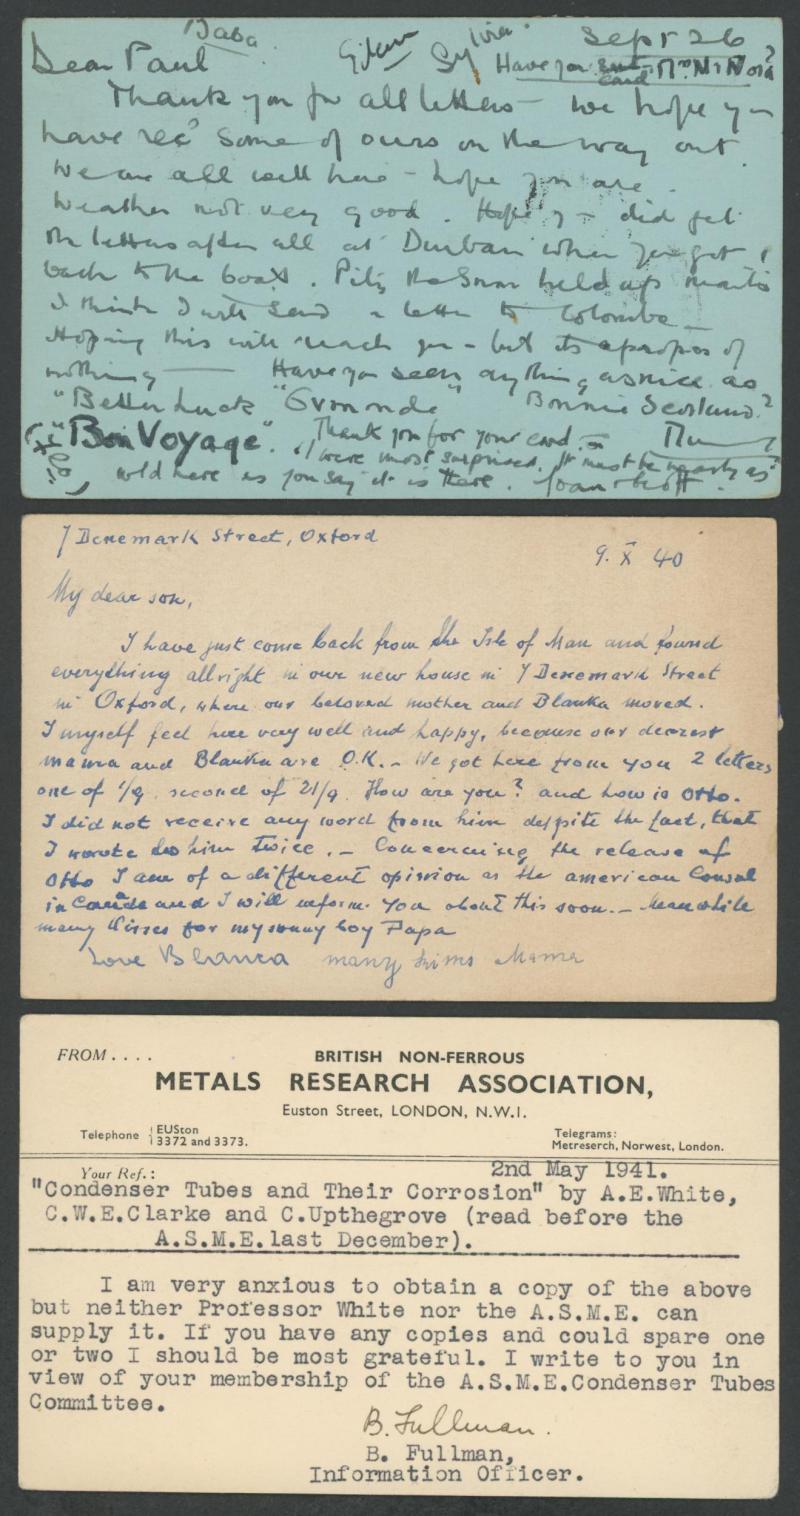 Baba
Sylvia
Sept 26
Dear Paul
Have you sent Mrs N's Nora?
card
Thank you for all letters - we hope you
have rec'd some of ours on the way out.
We are all well here - hope you are.
Weather not very good. Hope you did get
the letters after all at Durban when you got
back to the boat. Pity the held up mails
I think I will send a letter to Colombo -
Hoping this will reach you - but its apropos of
nothing - Have you seen anything as nice as
"Better Luck" "Gronde" Bonnie Scotland?
"Bon Voyage". Thank you for your card -
I were most surprised. It must be nearly as
cold here as you say it is there. Joan + Geoff.
7 Denemark Street, Oxford
9. X 40
My dear son,
I have just come back from the Isle of Man and found
everything allright in our new house in 7 Denemark Street
in Oxford, where our beloved mother and Blanka moved.
I myself feel here very well and happy, because our dearest
mama and Blanka are O.K. - We got here from you 2 letters
one of 1/9 second of 21/9 How are you? and how is Otto.
I did not receive any word from him despite the fact, that
I wrote to him twice. - Concerning the release of
Otto I am of a different opinion as the american Consul
in Canada and I will inform you about this soon. - Meanwhile
many kisses for my sunny boy Papa
Love Blanca many kisses Mama
FROM....
BRITISH NON-FERROUS
METALS RESEARCH ASSOCIATION,
Euston Street, LONDON, N.W.1.
Telephone EUSton 3372 and 3373.
Telegrams: Metreserch, Norwest, London.
Your Ref.:
2nd May 1941.
"Condenser Tubes and Their Corrosion" by A.E.White,
C.W.E.Clarke and C.Upthegrove (read before the
A.S.M.E.last December).
I am very anxious to obtain a copy of the above
but neither Professor White nor the A.S.M.E. can
supply it. If you have any copies and could spare one
or two I should be most grateful. I write to you in
view of your membership of the A.S.M.E.Condenser Tubes
Committee.
B. Fullman.
B. Fullman,
Information Officer.